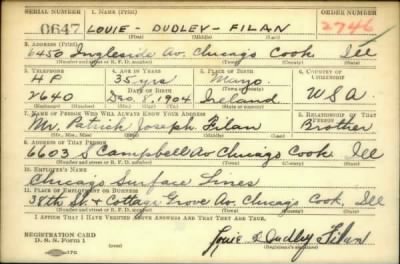 SERIAL NUMBER 1. NAME (Print) ORDER NUMBER
0647 LOUIE - DUDLEY - FILAN 2746
(First) (Middle) (Last)
2. ADDRESS (Print)
6450 Ingleside Av. Chicago Cook Ill
(Number and street or R. F. D. number) (Town) (County) (State)
3. TELEPHONE 4. AGE IN YEARS 5. PLACE OF BIRTH 6. COUNTRY OF CITIZENSHIP
HP 35 yrs Mayo
DATE OF BIRTH (Town or county)
2640 Dec. 8, 1904 Ireland USA
(Exchange) (Number) (Mo.) (Day) (Yr.) (State or country)
7. NAME OF PERSON WHO WILL ALWAYS KNOW YOUR ADDRESS 8. RELATIONSHIP OF THAT PERSON
Mr Patrick Joseph Filan Brother
(Mr., Mrs., Miss) (First) (Middle) (Last)
9. ADDRESS OF THAT PERSON
6603 S Campbell Av Chicago Cook Ill
(Number and street or R. F. D. number) (Town) (County) (State)
10. EMPLOYER'S NAME
Chicago Surface Lines
11. PLACE OF EMPLOYMENT OR BUSINESS
38th St & Cottage Grove Av. Chicago Cook, Ill
(Number and street or R. F. D. number) (Town) (County) (State)
I AFFIRM THAT I HAVE VERIFIED ABOVE ANSWERS AND THAT THEY ARE TRUE.
REGISTRATION CARD
D. S. S. Form 1 Louie Dudley Filan
(Registrant's signature)